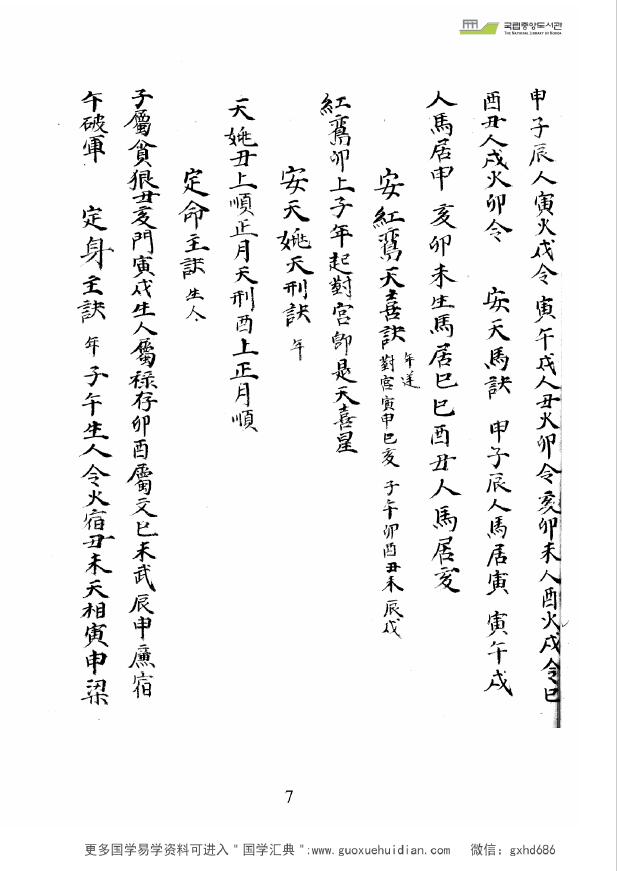 국립중앙도서관
THE NATIONAL LIBRARY OF KOREA
甲子辰人寅火戌令 寅午戌人丑火卯令亥卯未人酉火戌令巳
酉丑人戌火卯令 安天馬訣 甲子辰人馬居寅 寅午戌
人馬居申 亥卯未生馬居巳巳酉丑人馬居亥
安紅鸞天喜訣 年逆 對宮寅申巳亥 子午卯酉丑未辰戌
紅鸞卯上子年起對宮卽是天喜星
安天姚天刑訣 年
天姚丑上順正月天刑酉上正月順
定命主訣 生人
子屬貪狼丑亥門寅戌生人屬祿存卯酉屬文巳未武辰申廉宿
午破軍 定身主訣 年 子午生人令火宿丑未天相寅申梁
7
更多国学易学资料可进入＂国学汇典＂:www.guoxuehuidian.com 微信：gxhd686